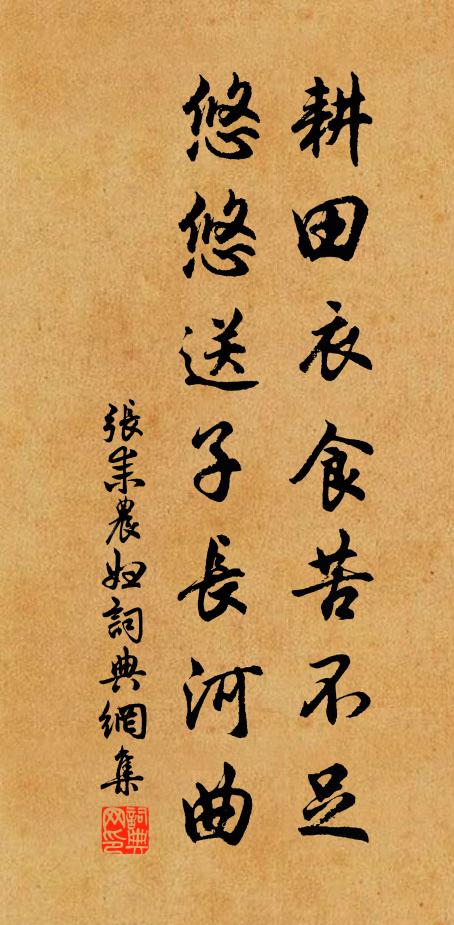 耕田衣食苦不足
悠悠送子長河曲
張耒農妇詞典網集
詞典网印